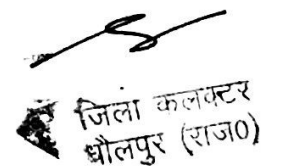 जिला कलक्टर
धौलपुर (राज0)